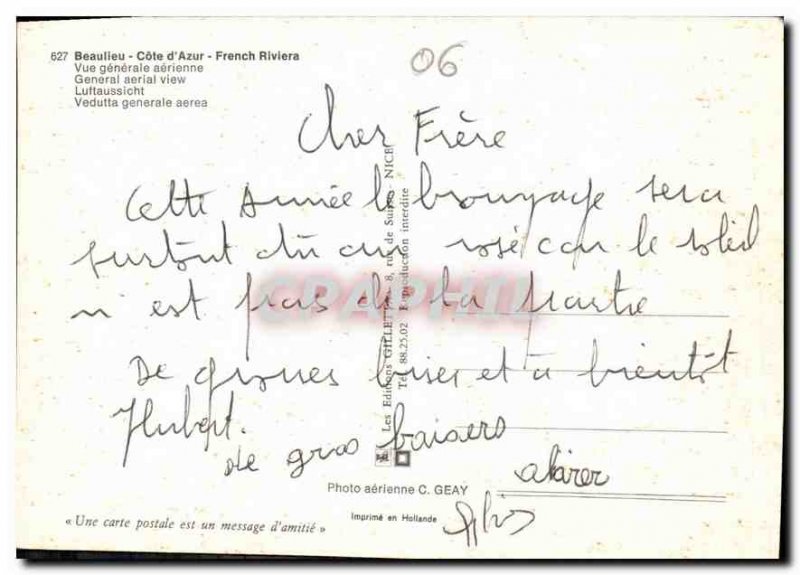 627 Beaulieu - Côte d'Azur - French Riviera
Vue générale aérienne
General aerial view
Luftaussicht
Vedutta generale aerea
06
Cher Frère
Cette Année le bronzage sera
surtout dû au rosé car le soleil
n'est pas de la partie
De grosses bises et à bientôt
Hubert.
de gros baisers
Les Editions GILLETTA - 8, rue de Suisse - NICE
Tél. 88.25.02 Reproduction interdite
CPAPHIL
Photo aérienne C. GEAY
Imprimé en Hollande
« Une carte postale est un message d'amitié »